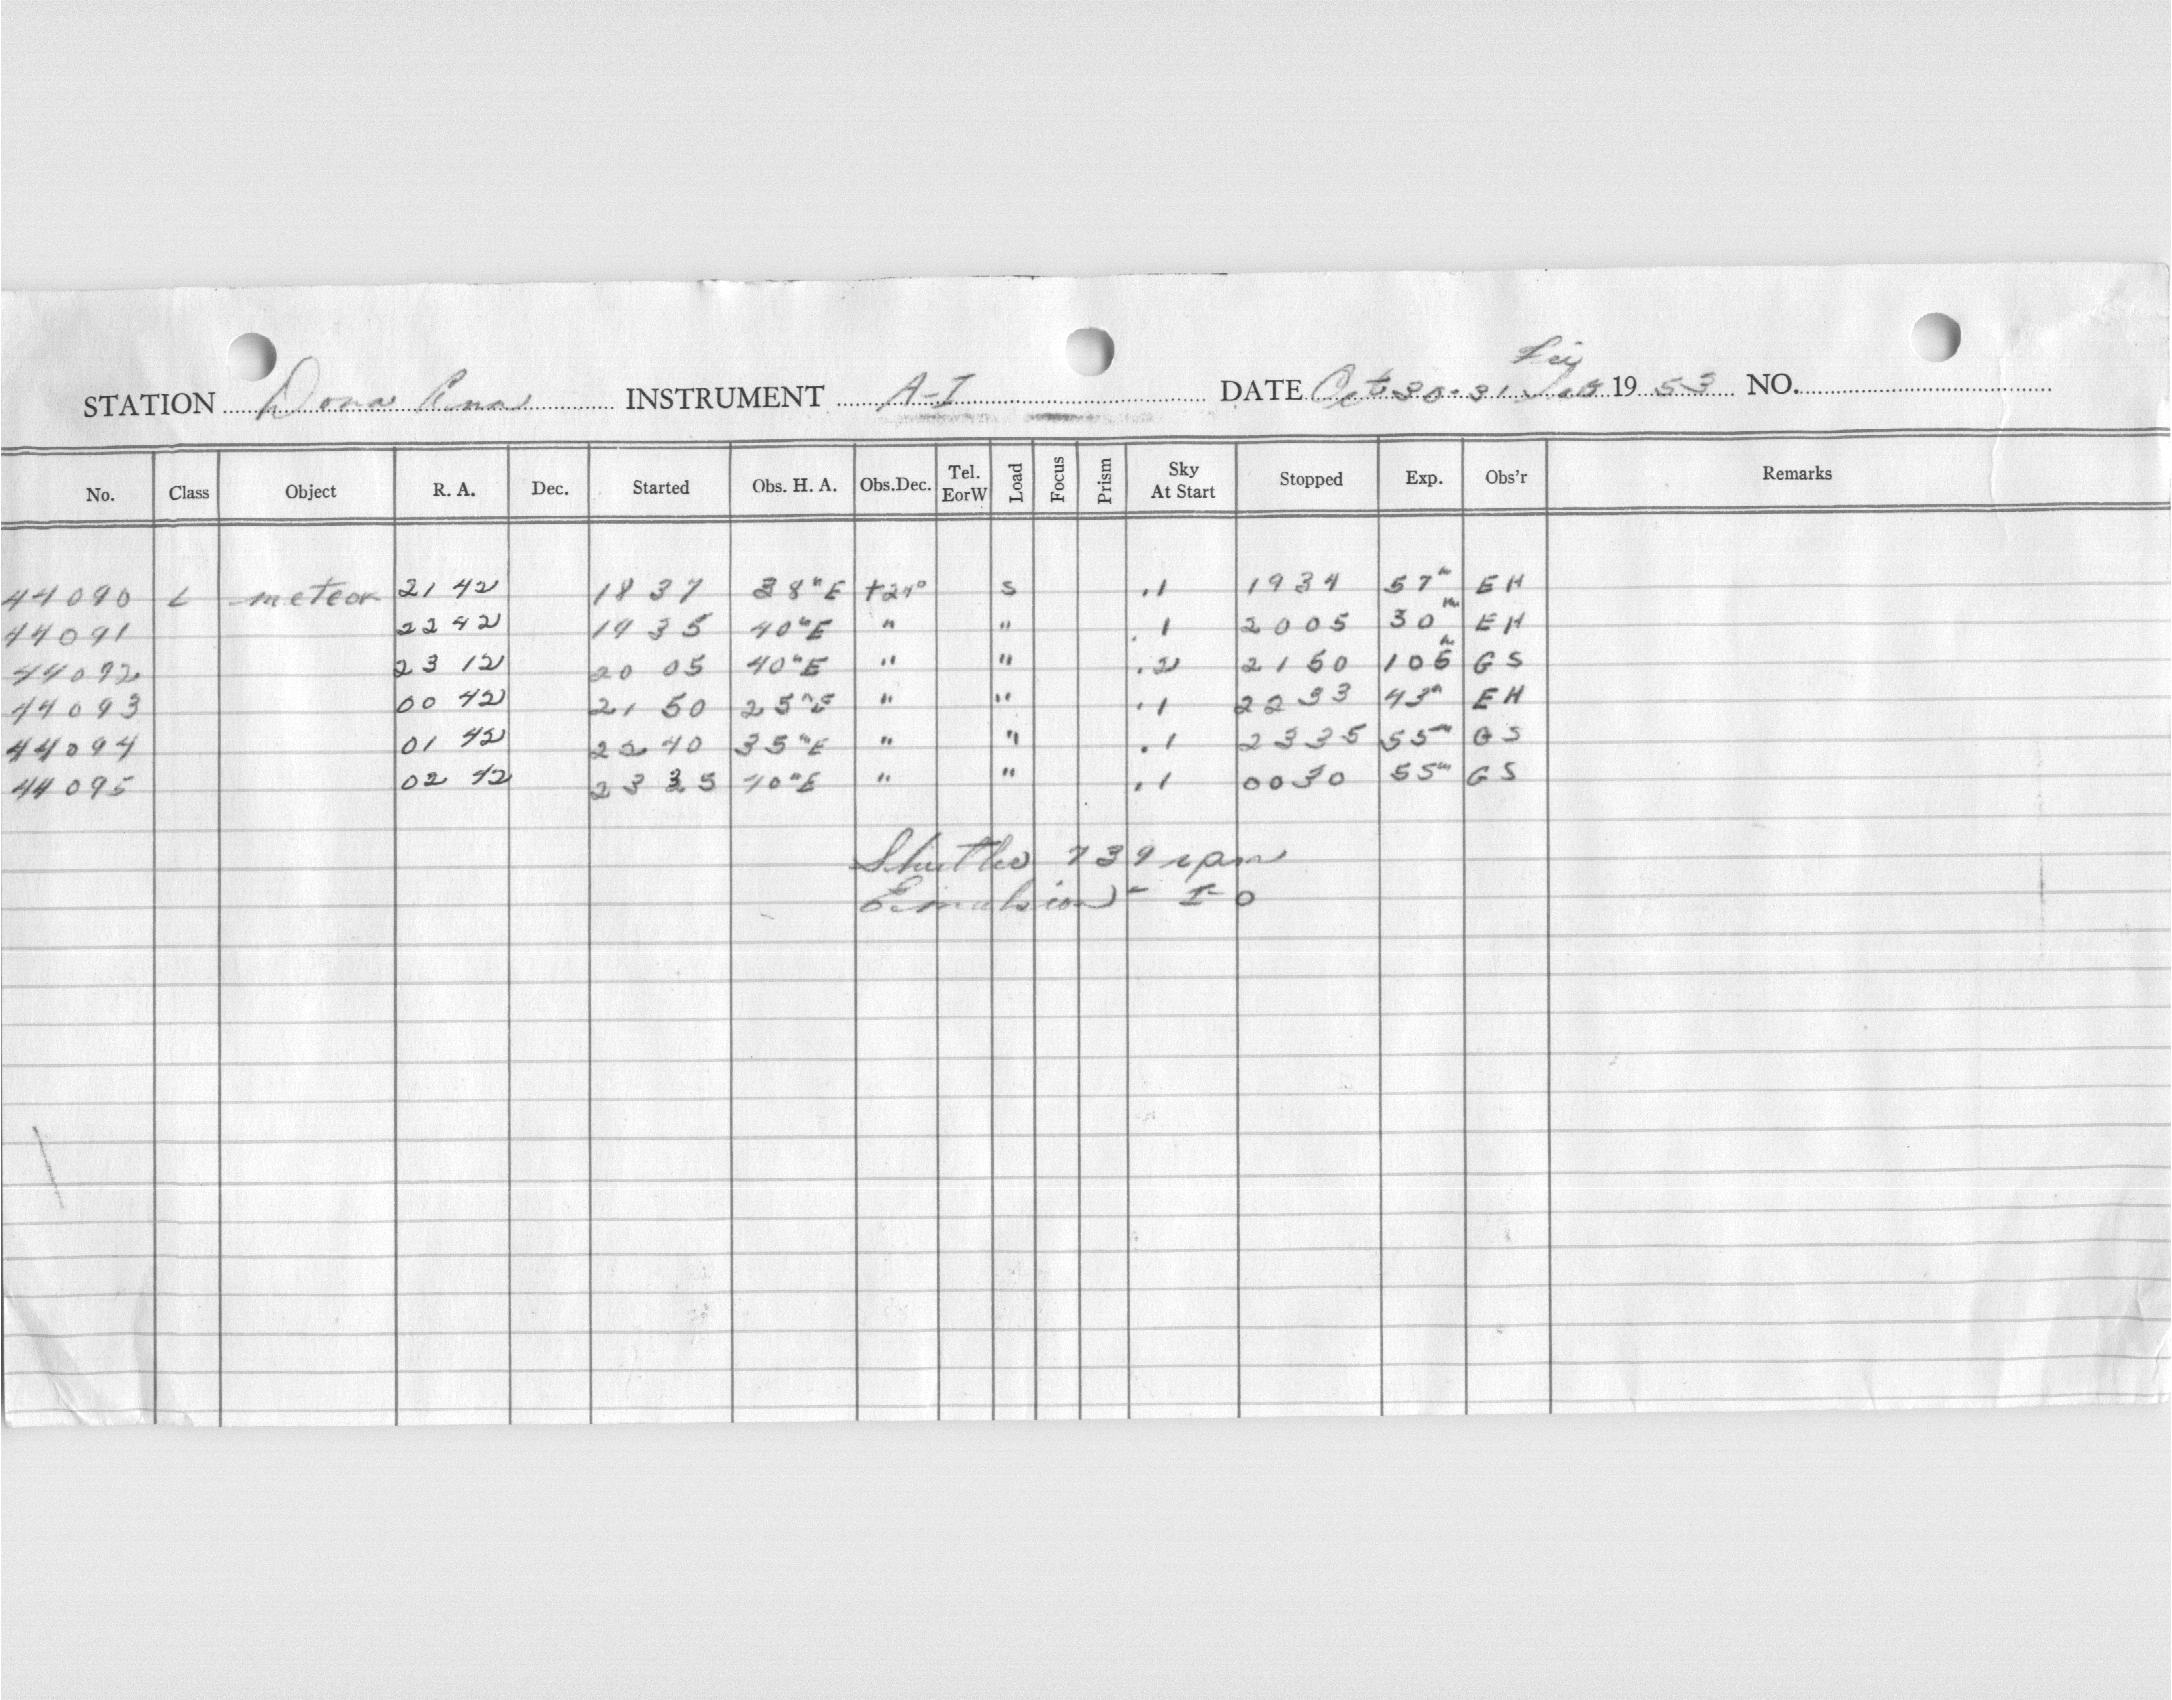 STATION Dona Ana INSTRUMENT A-I DATE Oct 30-31 Fri 1953 NO.
No. Class Object R. A. Dec. Started Obs. H. A. Obs.Dec. Tel. EorW Load Focus Prism Sky At Start Stopped Exp. Obs'r Remarks
44090 L meteor 21 42 1837 38m E +24° S .1 1934 57m EH
44091 22 42 1935 40m E " " .1 2005 30m EH
44092 23 12 2005 40m E " " .2 2150 105m GS
44093 00 42 2150 25m E " " .1 2233 43m EH
44094 01 42 2240 35m E " " .1 2335 55m GS
44095 02 42 2335 40m E " " .1 0030 55m GS
Shutter 739 rpm
Emulsion - I-O